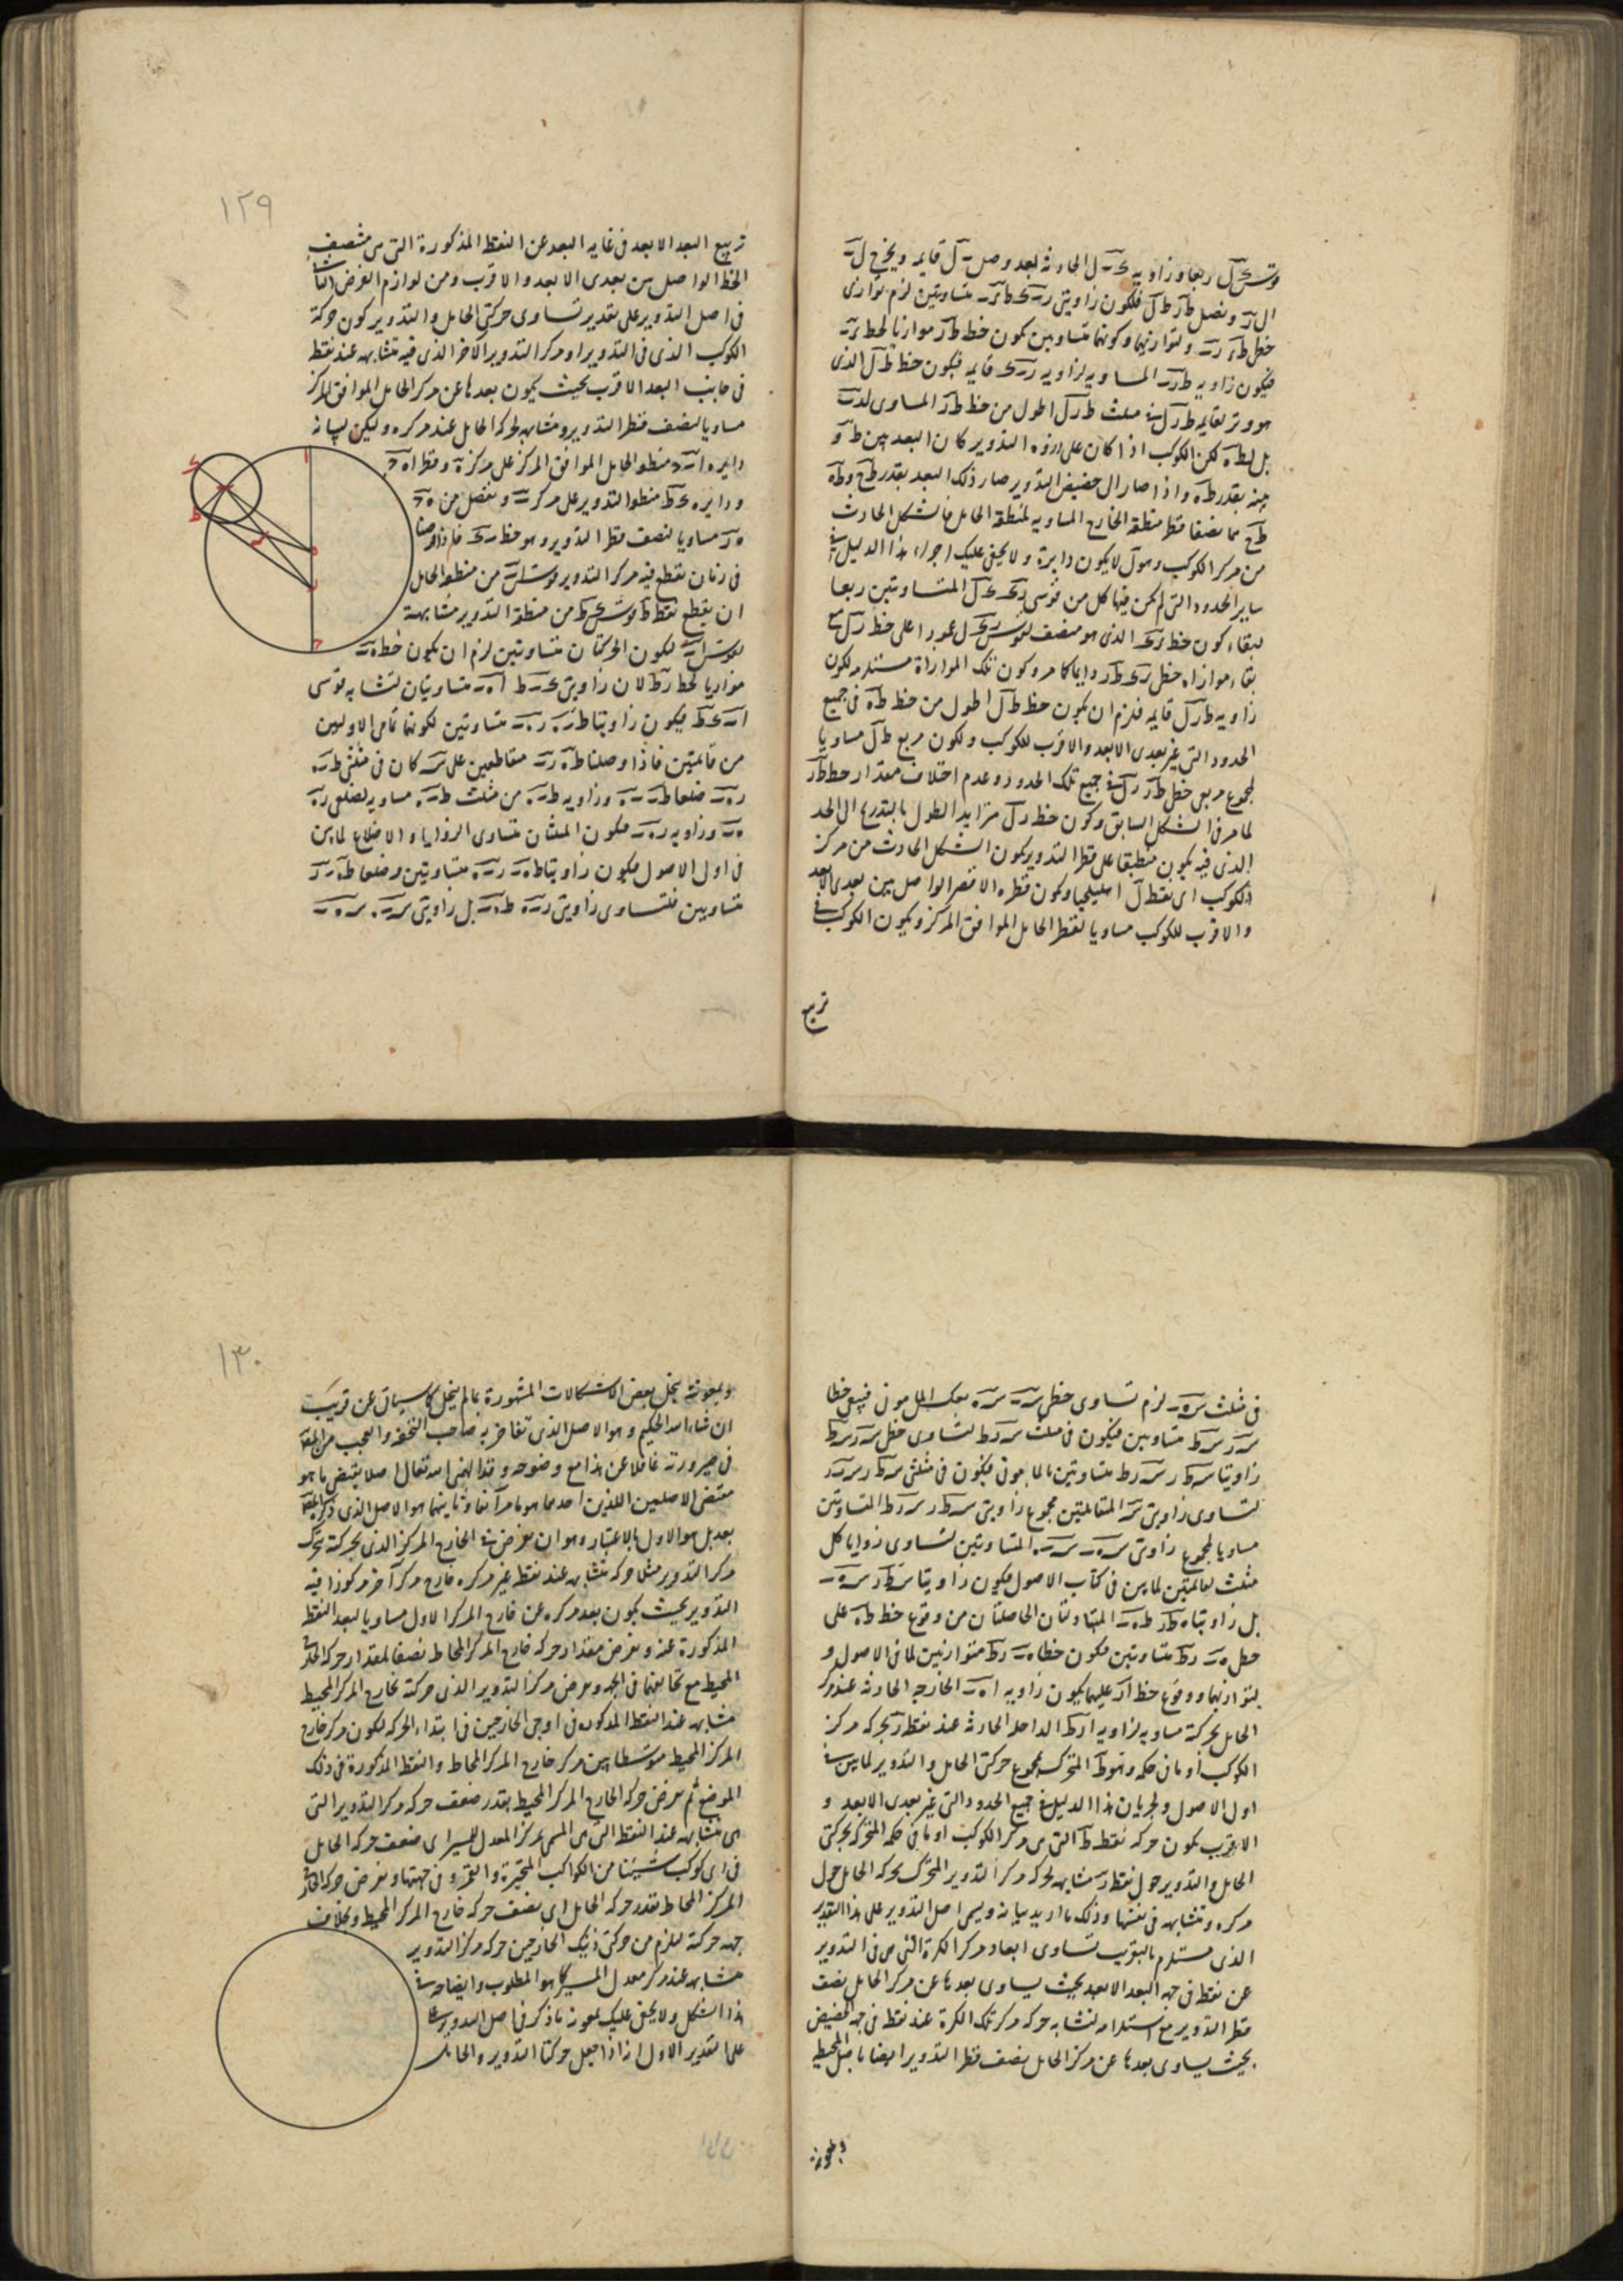 قوس ى ل ربعا وزاوية ى ب ل الحادثة بعد وصل ب ل قايمه ويخرج ل ب
الى ز ونصل ط ز ط ل فلكون زاويتى ز ب ى ط ز ب متساويتين لزم توازى
خطى ط ه ز ب ولتوازيهما وكونهما متساويين يكون خط ط ز موازيا لخط ه ب
فيكون زاويه ط ز ب المساويه لزاويه ز ب ى قايمه فيكون خط ط ل الذى
هو وتر لقايمه ط ز ل فى مثلث ط ز ل اطول من خط ط ز المساوى
بل لط ه لكن الكوكب اذا كان على ذروه التدوير كان البعد بين ط و
بينه بقدر ط ه واذا صار الى حضيض التدوير صار ذلك البعد بقدر ط ح و ط ه
ط ح مما نصفا قطر منطقه الخارج المساويه لمنطقة الحامل فالشكل الحادث
من مركز الكوكب وهو ل لا يكون دايرة ولا يخفى عليك اجراء هذا الدليل فى
ساير الحدود التى لم يكن فيها كل من قوسى المتساويتين ربعا
لبقاء كون خط الذى هو منصف لقوس عمودا على خط مع
بقاء موازاه خطى دايما كما مر وكون تلك الموازاة مستلزم لكون
زاويه ط ز ل قايمه فلزم ان يكون خط ط ل اطول من خط ط ه فى جميع
الحدود التى غير بعدى الابعد والاقرب للكوكب ولكون مربع ط ل مساويا
لمجموع مربعى خطى ط ز ز ل فى جميع تلك الحدود وعدم اختلاف مقدار خط ط ز
لما مر فى الشكل السابق وكون خط ز ل متزايد الطول بالتدريج الى الحد
الذى فيه يكون منطبقا على قطر التدوير يكون الشكل الحادث من مركز
الكوكب اى نقطة ل اهليلجيا وكون قطره الاقصر الواصل بين بعدى الابعد
والاقرب للكوكب مساويا لقطر الحامل الموافق المركز ويكون الكوكب فى
تربيع
١٢٩
تربيع البعد الابعد فى غايه البعد عن النقطة المذكورة التى هى منتصف
الخط الواصل بين بعدى الابعد والاقرب ومن لوازم الفرض الثانى
فى اصل التدوير على تقدير تساوى حركتى الحامل والتدوير كون حركة
الكوكب الذى فى التدوير او مركز التدوير الآخر الذى فيه تتشابه عند نقطة
فى جانب البعد الاقرب بحيث يكون بعدها عن مركز الحامل الموافق المركز
مساويا لنصف قطر التدوير ومشابهه لحركة الحامل عند مركزه وليكن لبيانه
دايره ا ب ح منطقه الحامل الموافق المركز على مركز ه وقطر ا ه ح
ودايره ى ح ط منطقه التدوير على مركز ب ونفصل من ه ح
ه ز مساويا لنصف قطر التدوير وهو خط ب ى فاذا فرضنا
فى زمان نقطع فيه مركز التدوير قوس ا ب من منطقه الحامل
ان يقطع نقطة ط قوس ى ط من منطقة التدوير مشابهة
لقوس ا ب لكون الحركتان متساويتين لزم ان يكون خط ه ب
موازيا لخط ز ط لان زاويتى ى ب ط ا ه ب متساويتان لتشابه قوسى
ا ب ى ط فيكون زاويتا ط ب ه ز ه ب متساويتين لكونهما تمامى الاوليين
من قايمتين فاذا وصلنا ط ه ز ب متقاطعين على س كان فى مثلثى ط ب ه
ز ه ب ضلعا ط ب ب ه وزاويه ط ب ه من مثلث ط ب ه مساويه لضلعى ز ه
ه ب وزاويه ز ه ب فيكون المثلثان متساوى الزوايا والاضلاع لما بين
فى اول الاصول فيكون زاويتا ط ه ب ز ب ه متساويتين وضلعا ط ه ز ب
متساويين فلتساوى زاويتى ز ب ه ط ه ب بل زاويتى س ب ه س ه ب
فى مثلث س ه ب لزم تساوى خطى س ب س ه بعكس المامونى فيبقى خطا
س ز س ط متساويين فيكون فى مثلث س ز ط لتساوى خطى س ز س ط
زاويتا س ط ز س ز ط متساويتين بالمامونى فيكون فى مثلثى س ط ز س ب ه
لتساوى زاويتى س المتقابلتين مجموع زاويتى س ط ز س ز ط المتساويتين
مساويا لمجموع زاويتى س ه ب س ب ه المتساويتين لتساوى زوايا كل
مثلث لقايمتين لما بين فى كتاب الاصول فيكون زاويتا س ط ز س ه ب
بل زاويتا ه ط ز ط ه ب المتبادلتان الحاصلتان من وقوع خط ط ه على
خطى ه ب ز ط متساويتين فيكون خطا ه ب ز ط متوازيين لما فى الاصول و
لتوازيهما ووقوع خط ا ز عليهما يكون زاويه ا ه ب الخارجه الحادثه عند مركز
الحامل بحركته مساويه لزاويه ا ز ط الداخله الحادثه عند نقطة ز بحركه مركز
الكوكب او ما فى حكمه وهو ط المتحرك بمجموع حركتى الحامل والتدوير لما بين فى
اول الاصول ولجريان هذا الدليل فى جميع الحدود التى غير بعدى الابعد و
الاقرب يكون حركه نقطة ط التى هى مركز الكوكب او ما فى حكمه المتحركه بحركتى
الحامل والتدوير حول نقطة ز مشابهه لحركه مركز التدوير المتحرك بحركه الحامل حول
مركزه ومتشابهه فى نفسها وذلك ما اريد بيانه وليسمى اصل التدوير على هذا التقدير
الذى مستلزم بالتقريب تساوى ابعاد مركز الكرة التى هى فى التدوير
عن نقطة فى جهه البعد الابعد بحيث يساوى بعدها عن مركز الحامل نصف
قطر التدوير مع استلزامه لتشابه حركه مركز تلك الكرة عند نقطة فى جهه الحضيض
بحيث يساوى بعدها عن مركز الحامل نصف قطر التدوير ايضا باصل المحيط
وبمعونته
١٣٠
وبمعونته ينحل بعض الاشكالات المشهورة مما لم ينحل كما سياتى عن قريب
ان شاء الله الحكيم وهو الاصل الذى تفاخر به صاحب التحفه والعجب من
فى ضرورته غافلا عن هذا مع وضوحه وقد الهمنى الله تعالى اصلا يقتضى ما هو
مقتضى الاصلين اللذين احدهما هو ما مر آنفا وثانيهما هو الاصل الذى
بعد بل هو الاول بالاعتبار وهو ان نفرض فى الخارج المركز الذى بحركته يتحرك
مركز التدوير مثلا حركه متشابهه عند نقطة غير مركزه خارج مركز آخر مركوزا فيه
التدوير بحيث يكون بعد مركزه عن خارج المركز الاول مساويا لبعد النقطة
المذكورة عنه ونفرض مقدار حركه خارج المركز المحاط نصفا لمقدار حركه الخارج
المحيط مع تخالفهما فى الجهه ونفرض مركز التدوير الذى حركته بخارج المركز المحيط
متشابهه عند النقطه المذكوره فى اوجى الخارجين فى ابتداء الحركه ليكون مركز خارج
المركز المحيط متوسطا بين مركز خارج المركز المحاط والنقطة المذكورة فى ذلك
الموضع ثم نفرض حركه الخارج المركز المحيط بقدر ضعف حركه مركز التدوير التى
هى متشابهه عند النقطة التى هى المسمى بمركز المعدل للمسير اى ضعف حركه الحامل
فى اى كوكب شيئنا من الكواكب المتحيرة والقمر وفى جهتها ونفرض حركه الخارج
المركز المحاط بقدر حركه الحامل اى نصف حركه خارج المركز المحيط وبخلاف
جهه حركته فلزم من حركتى ذينك الخارجين حركه مركز التدوير
متشابهه عند مركز معدل المسير كما هو المطلوب وايضاحه فى
هذا الشكل ولا يخفى عليك بمعونه ما ذكر فى اصل التدوير
على التقدير الاول انا اذا جعل حركتا التدوير والحامل